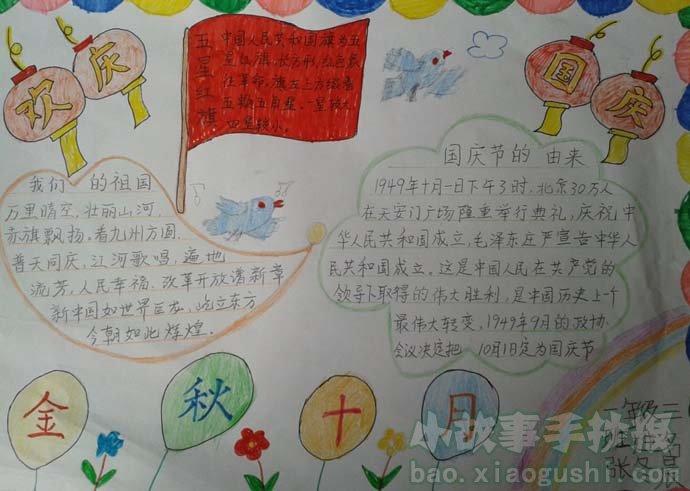 欢庆
国庆
五星红旗
中国人民共和国旗为五
星红旗，长方形，红色象
征革命，旗左上方缀着
五颗五角星、一星较大
四星较小。
我们 的祖国
万里晴空，壮丽山河
赤旗飘扬，看九州方圆
普天同庆，江河歌唱，遍地
流芳，人民幸福，改革开放谱新章
新中国如世界巨龙，屹立东方
今朝如此辉煌
国庆节的 由来
1949年十月一日下午3时，北京30万人
在天安门广场隆重举行典礼，庆祝中
华人民共和国成立，毛泽东庄严宣告中华人
民共和国成立。这是中国人民在共产党的
领导下取得的伟大胜利，是中国历史上个
最伟大转变，1949年9月的政协
会议决定把 10月1日定为国庆节
金秋十月
年级三
班
张
小故事手抄报
bao.xiaogushi.com